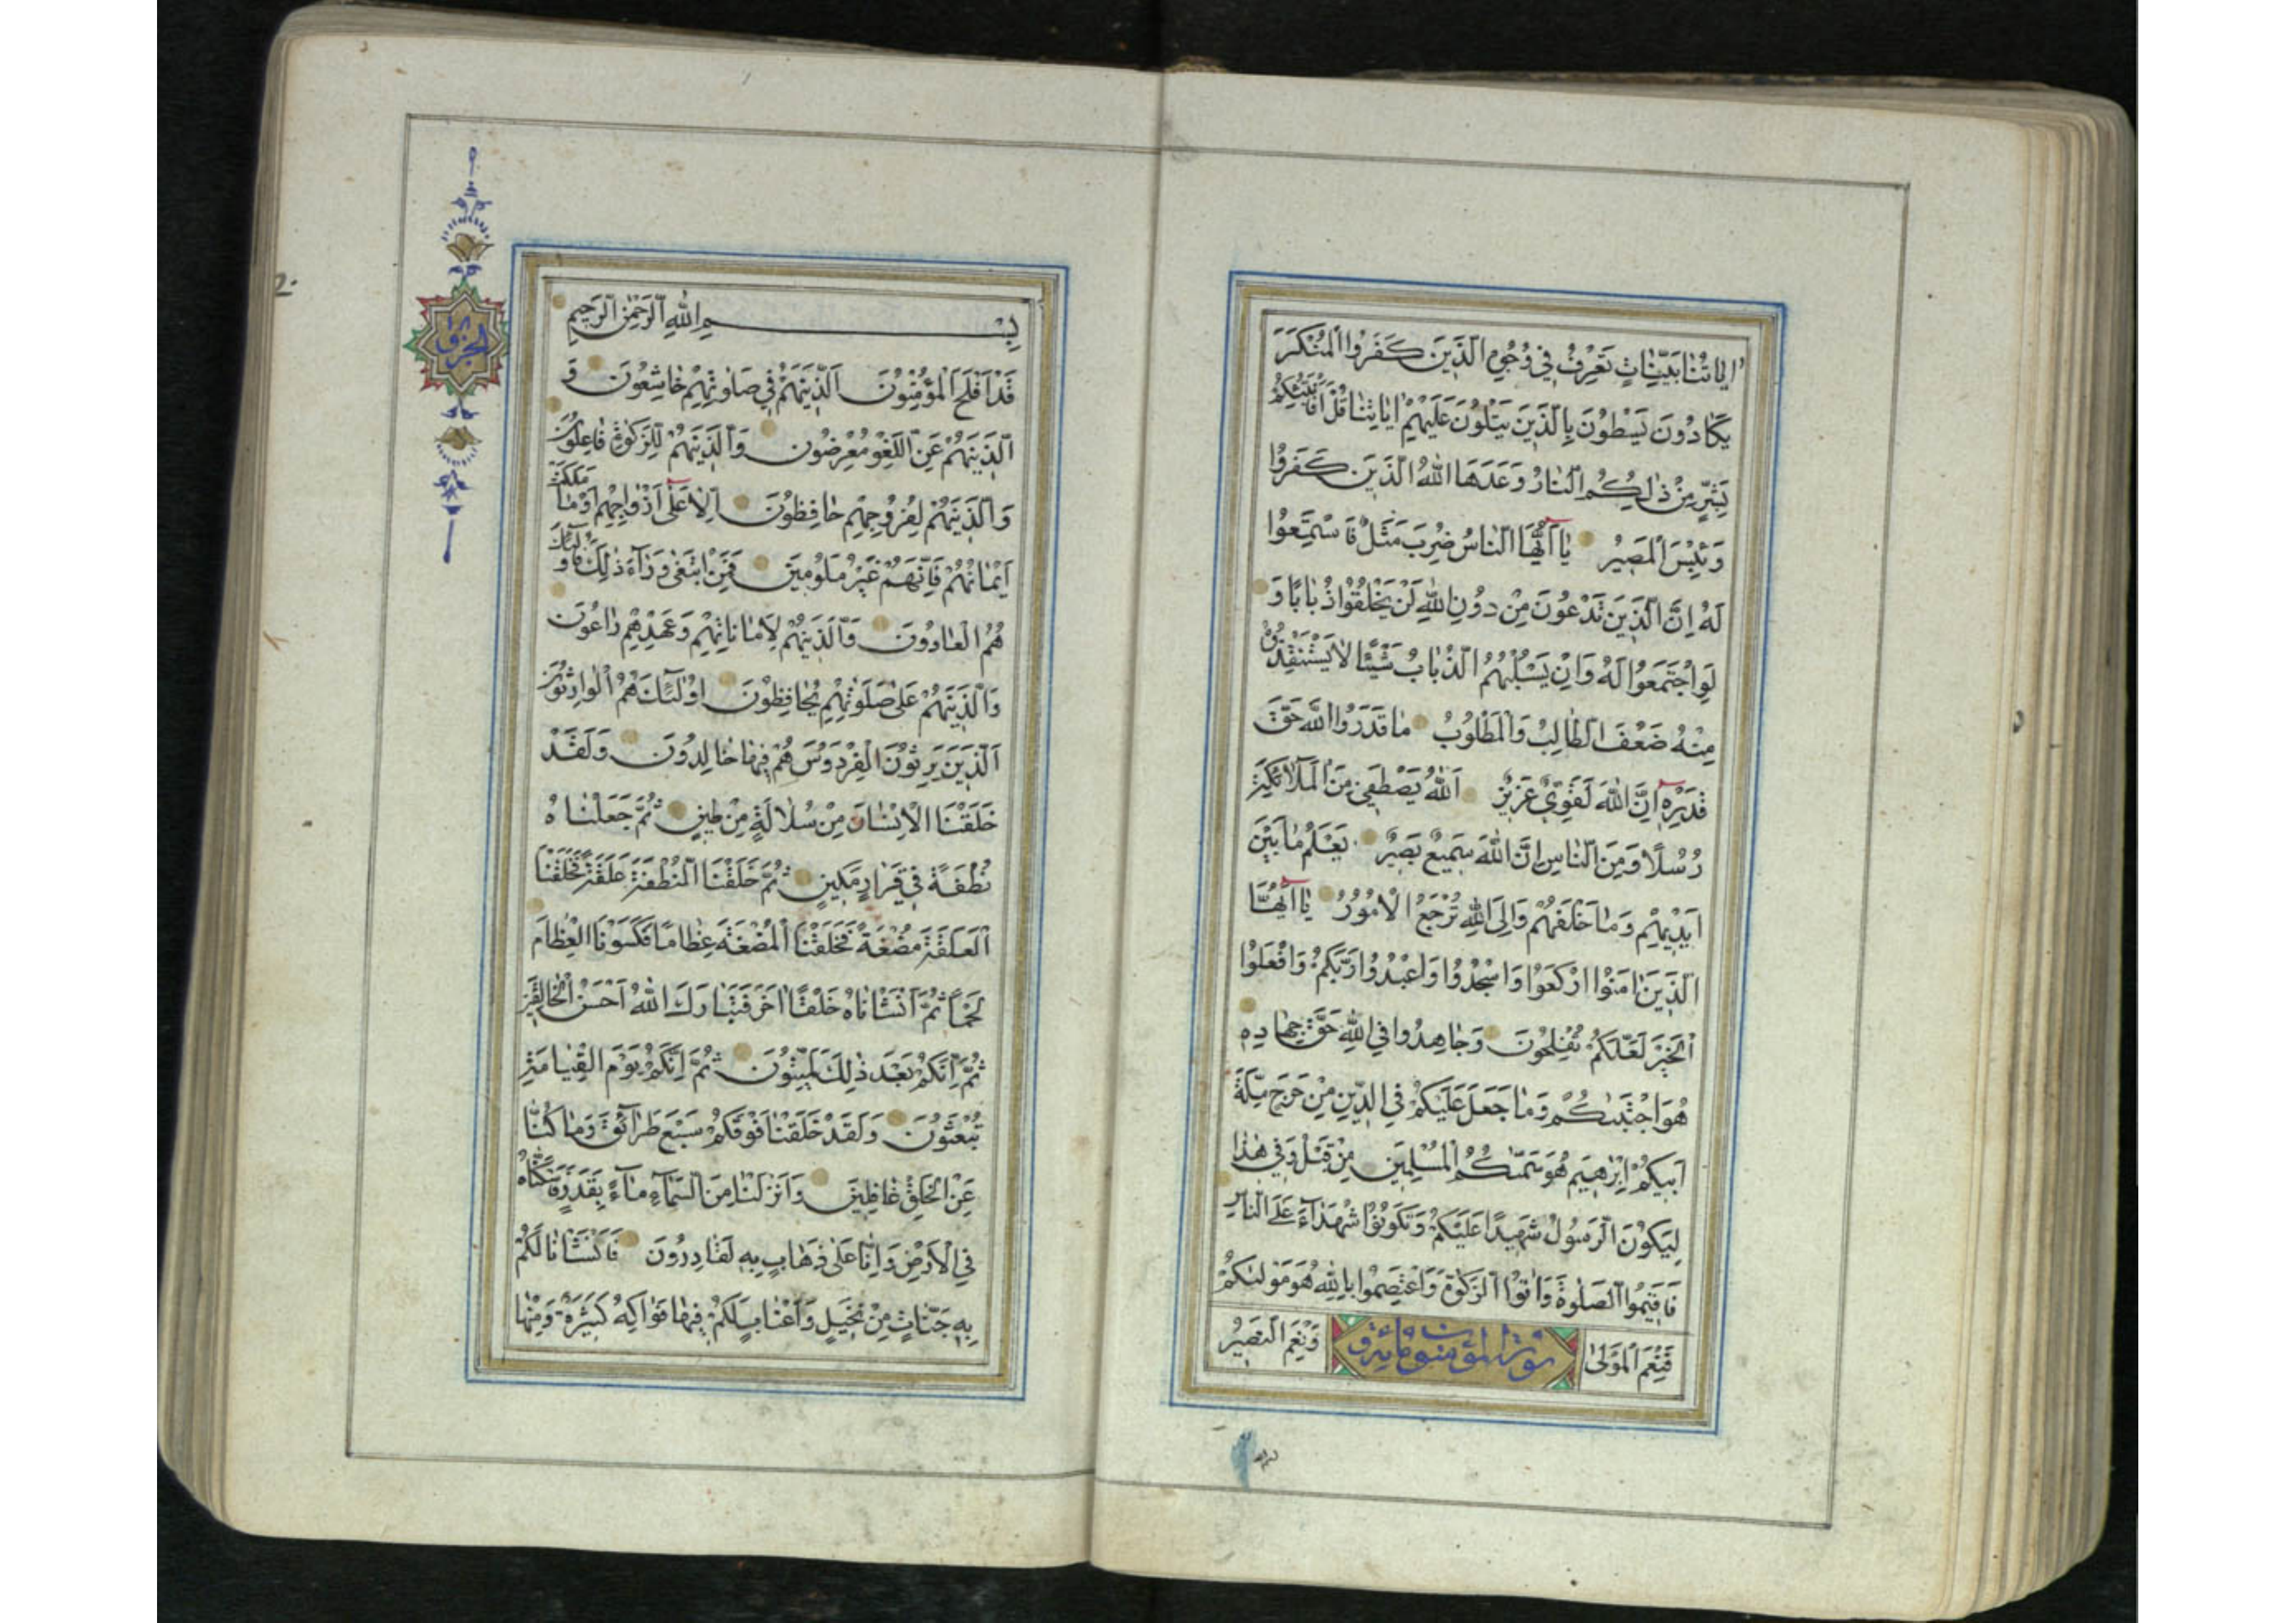 اٰيَاتُنَا بَيِّنَاتٍ تَعْرِفُ فِي وُجُوهِ الَّذِينَ كَفَرُوا الْمُنْكَرَ
يَكَادُونَ يَسْطُونَ بِالَّذِينَ يَتْلُونَ عَلَيْهِمْ اٰيَاتِنَا قُلْ اَفَاُنَبِّئُكُمْ
بِشَرٍّ مِنْ ذٰلِكُمُ النَّارُ وَعَدَهَا اللّٰهُ الَّذِينَ كَفَرُوا
وَبِئْسَ الْمَصِيرُ يَا اَيُّهَا النَّاسُ ضُرِبَ مَثَلٌ فَاسْتَمِعُوا
لَهُ اِنَّ الَّذِينَ تَدْعُونَ مِنْ دُونِ اللّٰهِ لَنْ يَخْلُقُوا ذُبَابًا وَ
لَوِ اجْتَمَعُوا لَهُ وَاِنْ يَسْلُبْهُمُ الذُّبَابُ شَيْئًا لَا يَسْتَنْقِذُوهُ
مِنْهُ ضَعُفَ الطَّالِبُ وَالْمَطْلُوبُ مَا قَدَرُوا اللّٰهَ حَقَّ
قَدْرِهِ اِنَّ اللّٰهَ لَقَوِيٌّ عَزِيزٌ اَللّٰهُ يَصْطَفِي مِنَ الْمَلَائِكَةِ
رُسُلًا وَمِنَ النَّاسِ اِنَّ اللّٰهَ سَمِيعٌ بَصِيرٌ يَعْلَمُ مَا بَيْنَ
اَيْدِيهِمْ وَمَا خَلْفَهُمْ وَاِلَى اللّٰهِ تُرْجَعُ الْاُمُورُ يَا اَيُّهَا
الَّذِينَ اٰمَنُوا ارْكَعُوا وَاسْجُدُوا وَاعْبُدُوا رَبَّكُمْ وَافْعَلُوا
الْخَيْرَ لَعَلَّكُمْ تُفْلِحُونَ وَجَاهِدُوا فِي اللّٰهِ حَقَّ جِهَادِهِ
هُوَ اجْتَبٰىكُمْ وَمَا جَعَلَ عَلَيْكُمْ فِي الدِّينِ مِنْ حَرَجٍ مِلَّةَ
اَبِيكُمْ اِبْرٰهِيمَ هُوَ سَمّٰىكُمُ الْمُسْلِمِينَ مِنْ قَبْلُ وَفِي هٰذَا
لِيَكُونَ الرَّسُولُ شَهِيدًا عَلَيْكُمْ وَتَكُونُوا شُهَدَاءَ عَلَى النَّاسِ
فَاَقِيمُوا الصَّلٰوةَ وَاٰتُوا الزَّكٰوةَ وَاعْتَصِمُوا بِاللّٰهِ هُوَ مَوْلٰىكُمْ
فَنِعْمَ الْمَوْلٰى سورة المؤمنون مائة و وَنِعْمَ النَّصِيرُ
الجزء
بِسْمِ اللّٰهِ الرَّحْمٰنِ الرَّحِيمِ
قَدْ اَفْلَحَ الْمُؤْمِنُونَ اَلَّذِينَ هُمْ فِي صَلَاوتِهِمْ خَاشِعُونَ وَ
الَّذِينَ هُمْ عَنِ اللَّغْوِ مُعْرِضُونَ وَالَّذِينَ هُمْ لِلزَّكٰوةِ فَاعِلُونَ
وَالَّذِينَ هُمْ لِفُرُوجِهِمْ حَافِظُونَ اِلَّا عَلٰى اَزْوَاجِهِمْ اَوْ مَا مَلَكَتْ
اَيْمَانُهُمْ فَاِنَّهُمْ غَيْرُ مَلُومِينَ فَمَنِ ابْتَغٰى وَرَاءَ ذٰلِكَ فَاُولٰئِكَ
هُمُ الْعَادُونَ وَالَّذِينَ هُمْ لِاَمَانَاتِهِمْ وَعَهْدِهِمْ رَاعُونَ
وَالَّذِينَ هُمْ عَلٰى صَلَوٰتِهِمْ يُحَافِظُونَ اُولٰئِكَ هُمُ الْوَارِثُونَ
اَلَّذِينَ يَرِثُونَ الْفِرْدَوْسَ هُمْ فِيهَا خَالِدُونَ وَلَقَدْ
خَلَقْنَا الْاِنْسَانَ مِنْ سُلَالَةٍ مِنْ طِينٍ ثُمَّ جَعَلْنَاهُ
نُطْفَةً فِي قَرَارٍ مَكِينٍ ثُمَّ خَلَقْنَا النُّطْفَةَ عَلَقَةً فَخَلَقْنَا
الْعَلَقَةَ مُضْغَةً فَخَلَقْنَا الْمُضْغَةَ عِظَامًا فَكَسَوْنَا الْعِظَامَ
لَحْمًا ثُمَّ اَنْشَاْنَاهُ خَلْقًا اٰخَرَ فَتَبَارَكَ اللّٰهُ اَحْسَنُ الْخَالِقِينَ
ثُمَّ اِنَّكُمْ بَعْدَ ذٰلِكَ لَمَيِّتُونَ ثُمَّ اِنَّكُمْ يَوْمَ الْقِيَامَةِ
تُبْعَثُونَ وَلَقَدْ خَلَقْنَا فَوْقَكُمْ سَبْعَ طَرَائِقَ وَمَا كُنَّا
عَنِ الْخَلْقِ غَافِلِينَ وَاَنْزَلْنَا مِنَ السَّمَاءِ مَاءً بِقَدَرٍ فَاَسْكَنَّاهُ
فِي الْاَرْضِ وَاِنَّا عَلٰى ذَهَابٍ بِهِ لَقَادِرُونَ فَاَنْشَاْنَا لَكُمْ
بِهِ جَنَّاتٍ مِنْ نَخِيلٍ وَاَعْنَابٍ لَكُمْ فِيهَا فَوَاكِهُ كَثِيرَةٌ وَمِنْهَا